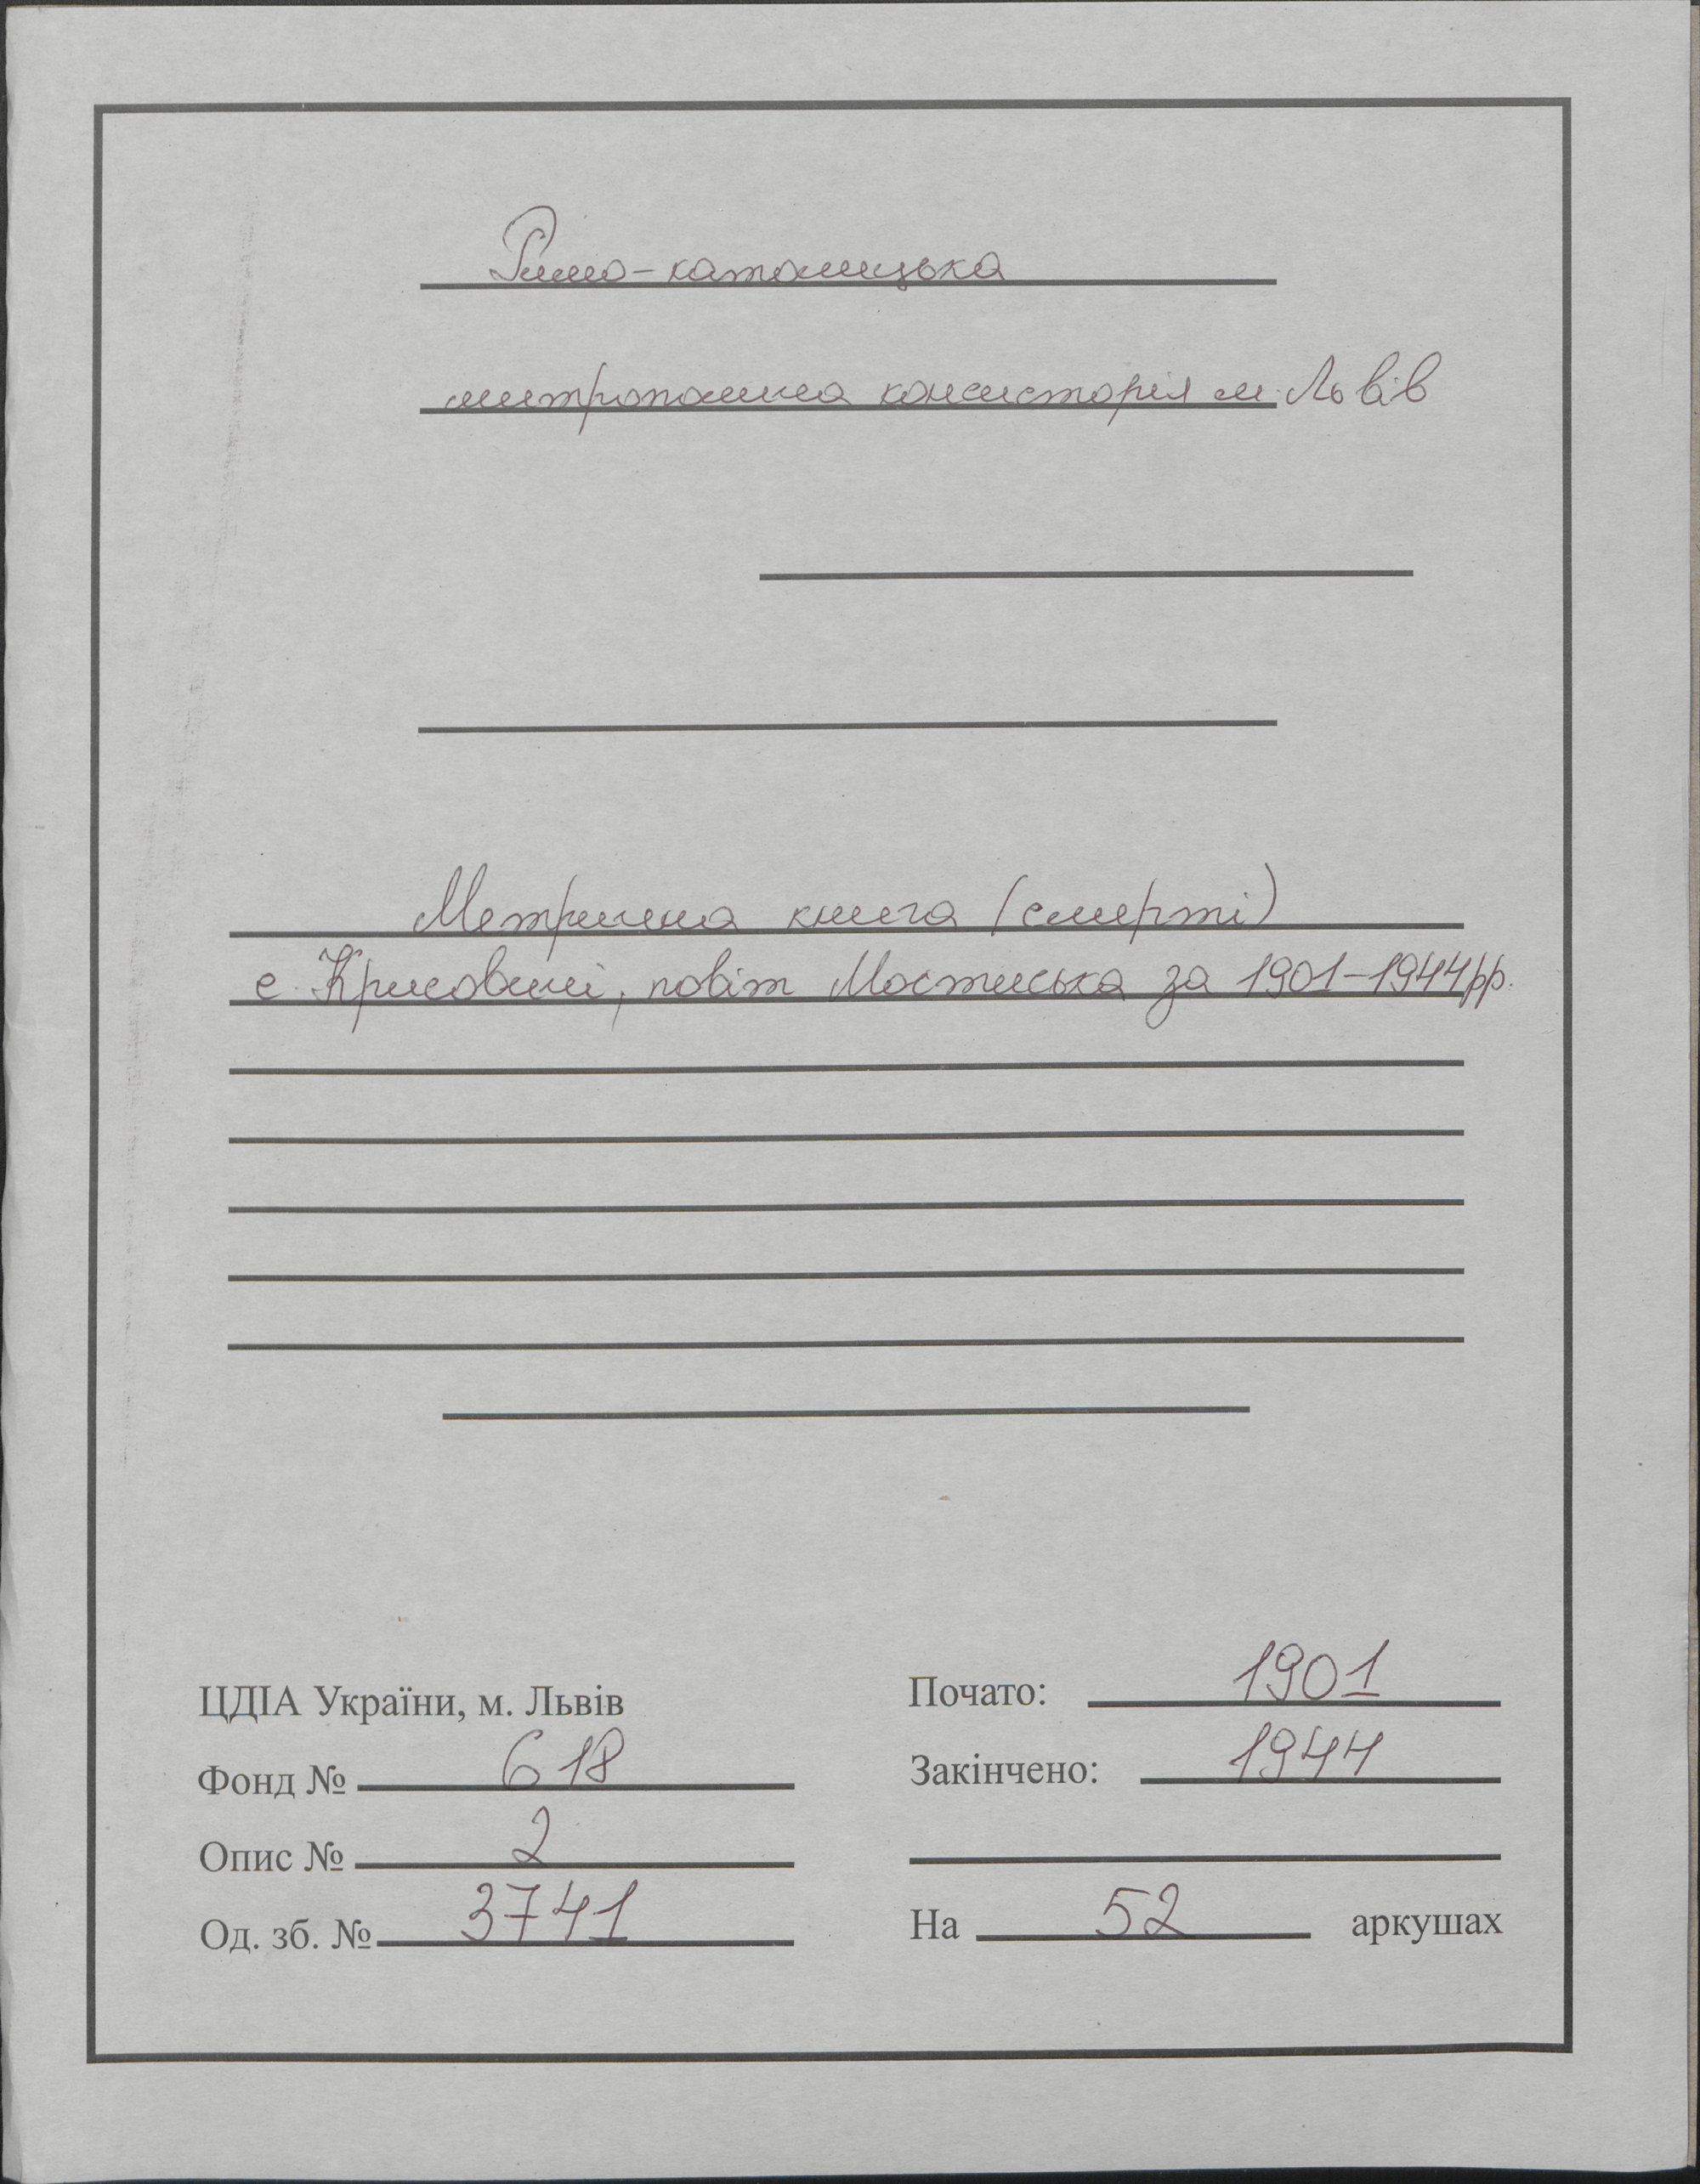 Римо-католицька
митрополича консисторія м. Львів
Метрична книга (смерті)
с. Крисовичі, повіт Мостиська за 1901-1944рр.
ЦДІА України, м. Львів
Фонд № 618
Опис № 2
Од. зб. № 3741
Почато: 1901
Закінчено: 1944
На 52 аркушах